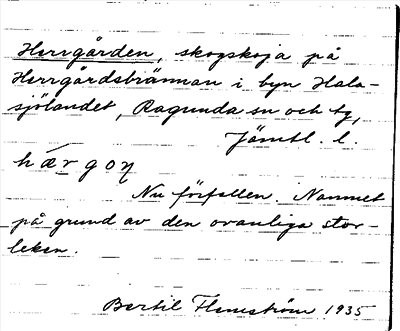 Herrgården, skogskoja på
Herrgårdsbrännan i byn Hala-
sjölandet, Ragunda sn och tg,
Jämtl. l.
hærgoɳ
Nu förfallen. Namnet
på grund av den ovanliga stor-
leken.
Bertil Flemström 1935